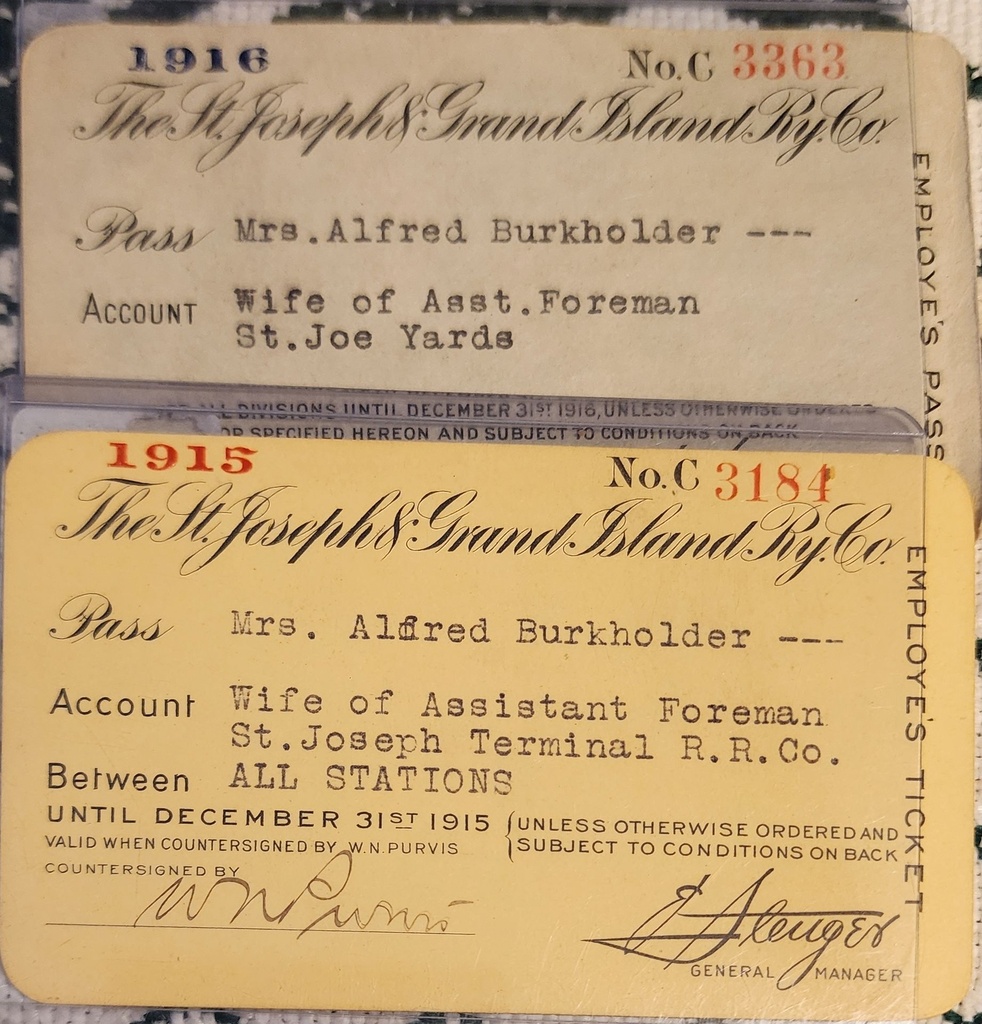 1916 No. C 3363
The St. Joseph & Grand Island Ry. Co.
Pass Mrs.Alfred Burkholder ---
ACCOUNT Wife of Asst.Foreman
St.Joe Yards
ALL DIVISIONS UNTIL DECEMBER 31ST 1916, UNLESS OTHERWISE ORDERED
OR SPECIFIED HEREON AND SUBJECT TO CONDITIONS ON BACK
EMPLOYE'S PASS
1915 No. C 3184
The St. Joseph & Grand Island Ry. Co.
Pass Mrs. Alfred Burkholder ---
Account Wife of Assistant Foreman
St.Joseph Terminal R.R.Co.
Between ALL STATIONS
UNTIL DECEMBER 31ST 1915 {UNLESS OTHERWISE ORDERED AND
VALID WHEN COUNTERSIGNED BY W.N. PURVIS SUBJECT TO CONDITIONS ON BACK
COUNTERSIGNED BY
W N Purvis
E Stenger
GENERAL MANAGER
EMPLOYE'S TICKET